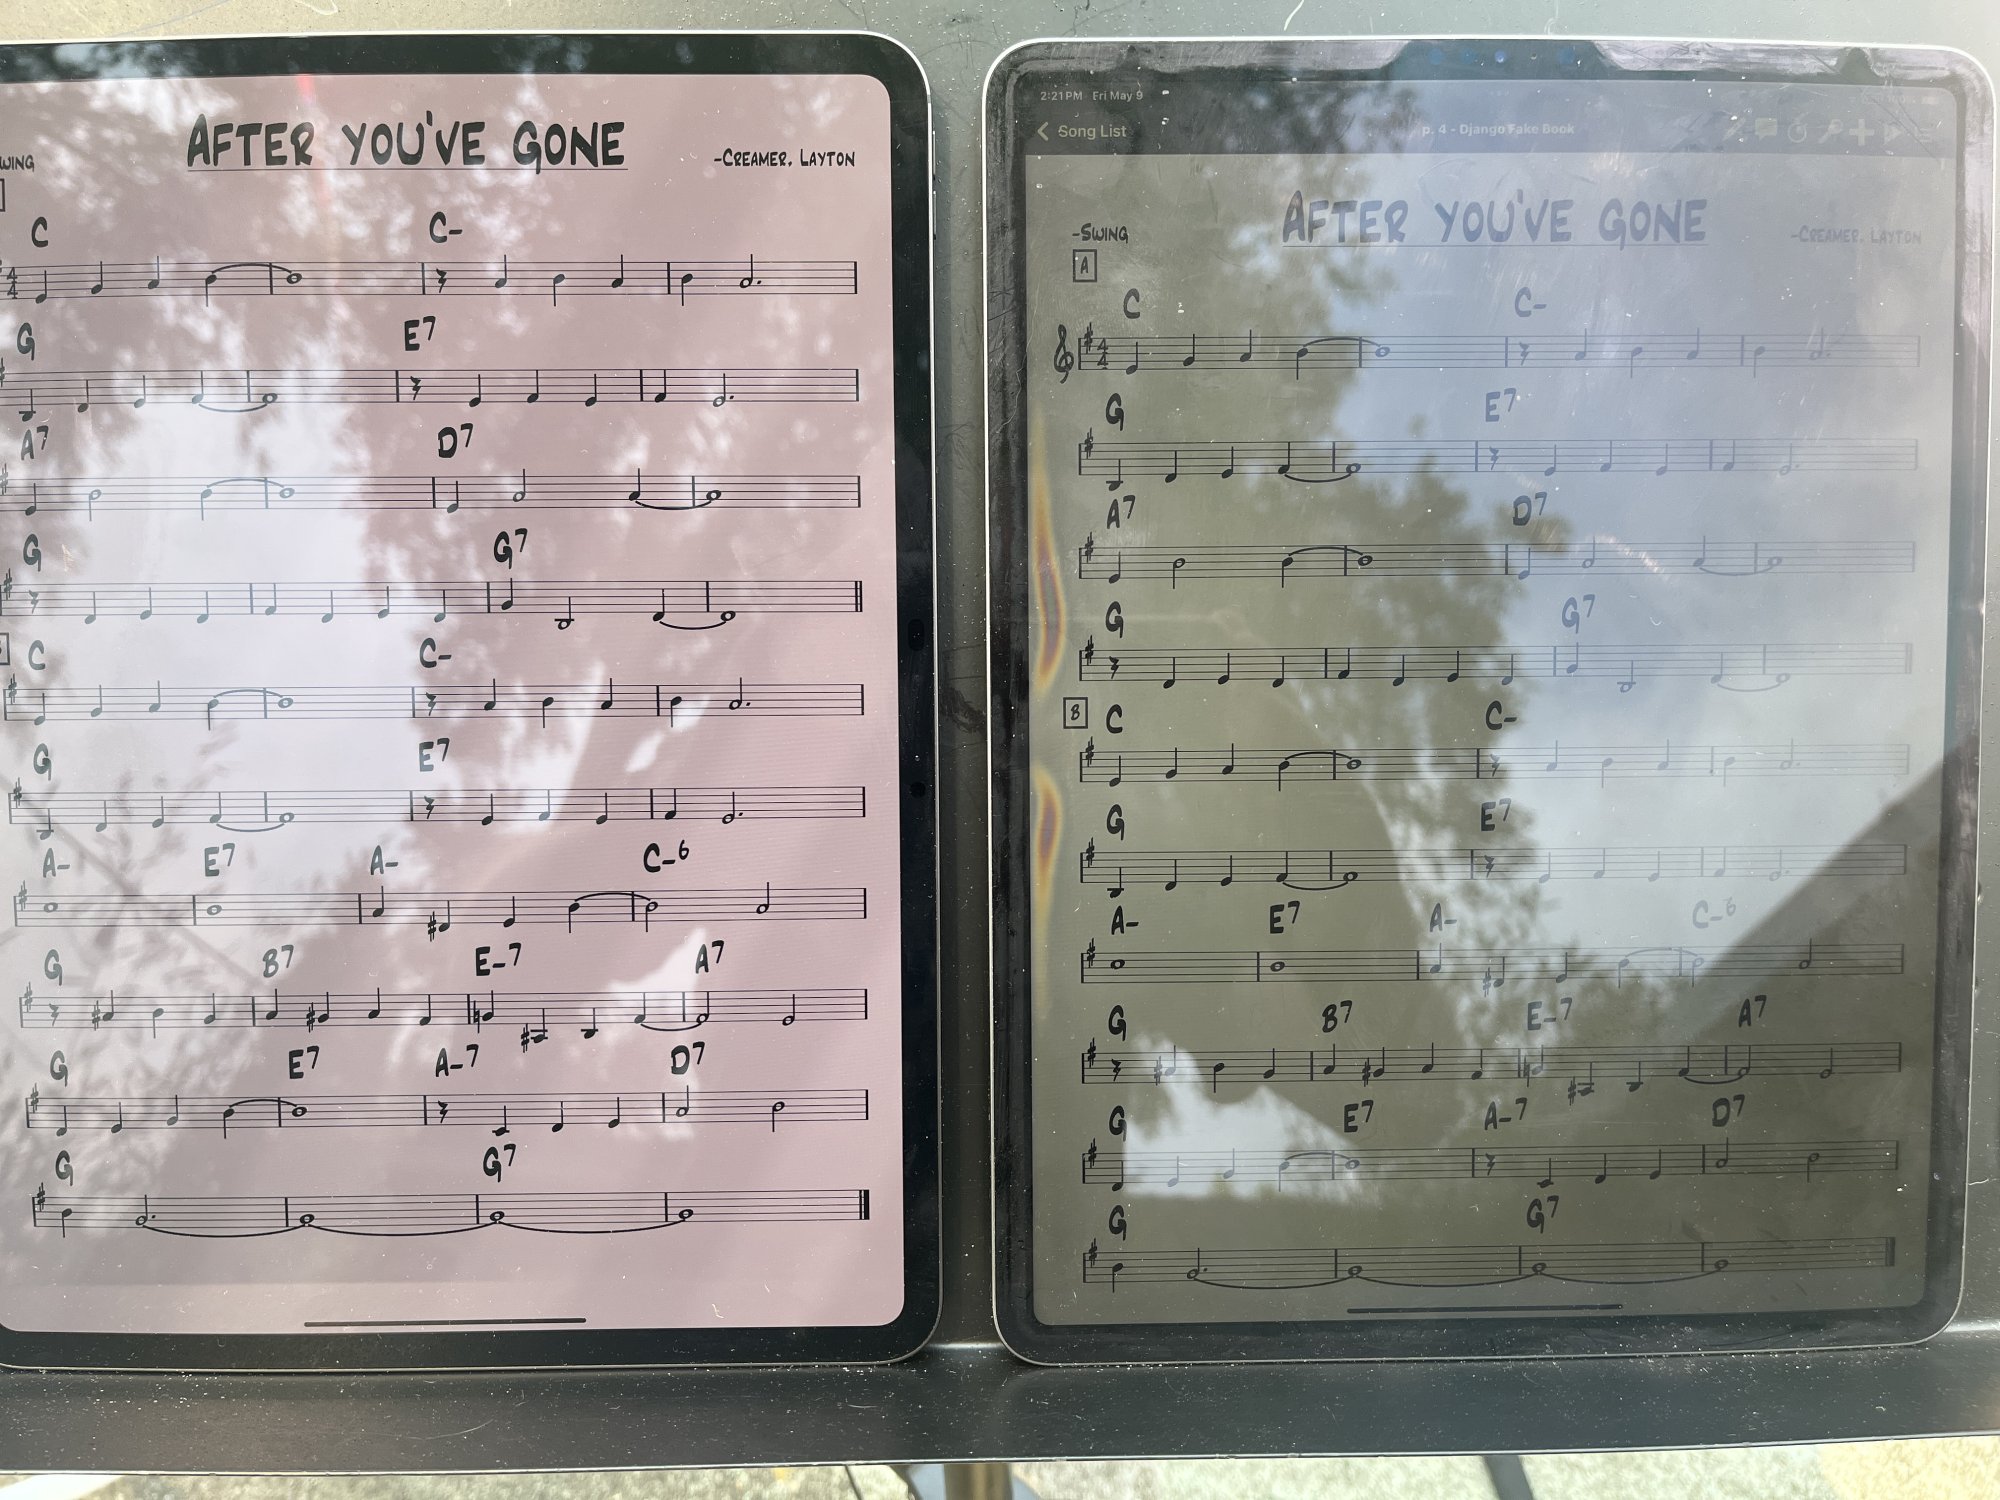 AFTER YOU'VE GONE
WING
-CREAMER, LAYTON
C C-
4
4
G E7
A7 D7
G G7
C C-
G E7
A- E7 A- C-6
G B7 E-7 A7
G E7 A-7 D7
G G7
2:21 PM Fri May 9
Song List
p. 4 - Django Fake Book
AFTER YOU'VE GONE
-SWING
-CREAMER, LAYTON
A
C C-
4
4
G E7
A7 D7
G G7
B C C-
G E7
A- E7 A- C-6
G B7 E-7 A7
G E7 A-7 D7
G G7